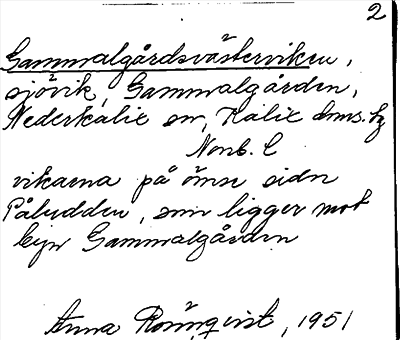 2
Gammalgårdsvästerviken,
sjövik, Gammalgården,
Nederkalix sn, Kalix dms. hg
Norrb. l
vikarna på ömse sidor
Påludden, som ligger mot
byn Gammalgården
Anna Rönnqvist, 1951